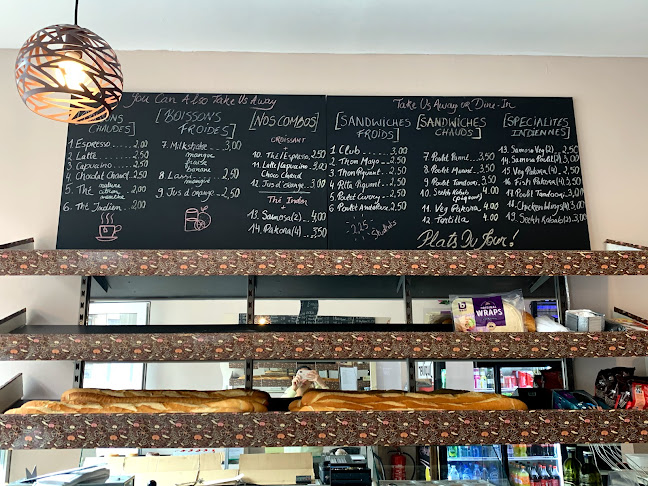 You Can Also Take Us Away
[BOISSONS
FROIDES]
1. Espresso 2,00
2. Latte 2,50
3. Capucino 2,50
4. Chocolat Chaud 2,50
5. Thé nature
citron
menthe
6. Thé Indien 2,00
7. Milkshake 3,00
mangue
fraise
banane
8. Lassi 2,50
mangue
9. Jus d'orange 2,50
[NOS COMBOS]
CROISSANT
+
10. Thé/Espresso 2,50
11. Latte/Capucino 3,00
Choco Chaud
12. Jus d'orange 3,00
Thé Indien
+
13. Samosa(2) 4,00
14. Pakora(4) 3,50
Take Us Away or Dine-In
[SANDWICHES
FROIDS]
1. Club 3,00
2. Thon Mayo 2,50
3. Thon Piquant 2,50
4. Pita Piquant 2,50
5. Poulet Curry 2,50
6. Poulet Andalouse 2,50
2,25
Students
[SANDWICHES
CHAUDS]
7. Poulet Pané 3,50
8. Poulet Mariné 3,50
9. Poulet Tandoori 3,50
10. Seekh Kebab 3,50
(piquant)
11. Veg Pakora 4.00
12. Tortilla 4.00
[SPECIALITES
INDIENNES]
13. Samosa Veg(2) 2,50
14. Samosa Poulet(2) 3,00
15. Veg Pakora(4) 2,50
16. Fish Pakora(4) 3,50
17. Poulet Tandoori 3,00
18. Chicken Wings(4) 3,00
19. Seekh Kebab(2) 3,00
Plats Du Jour!
WRAPS